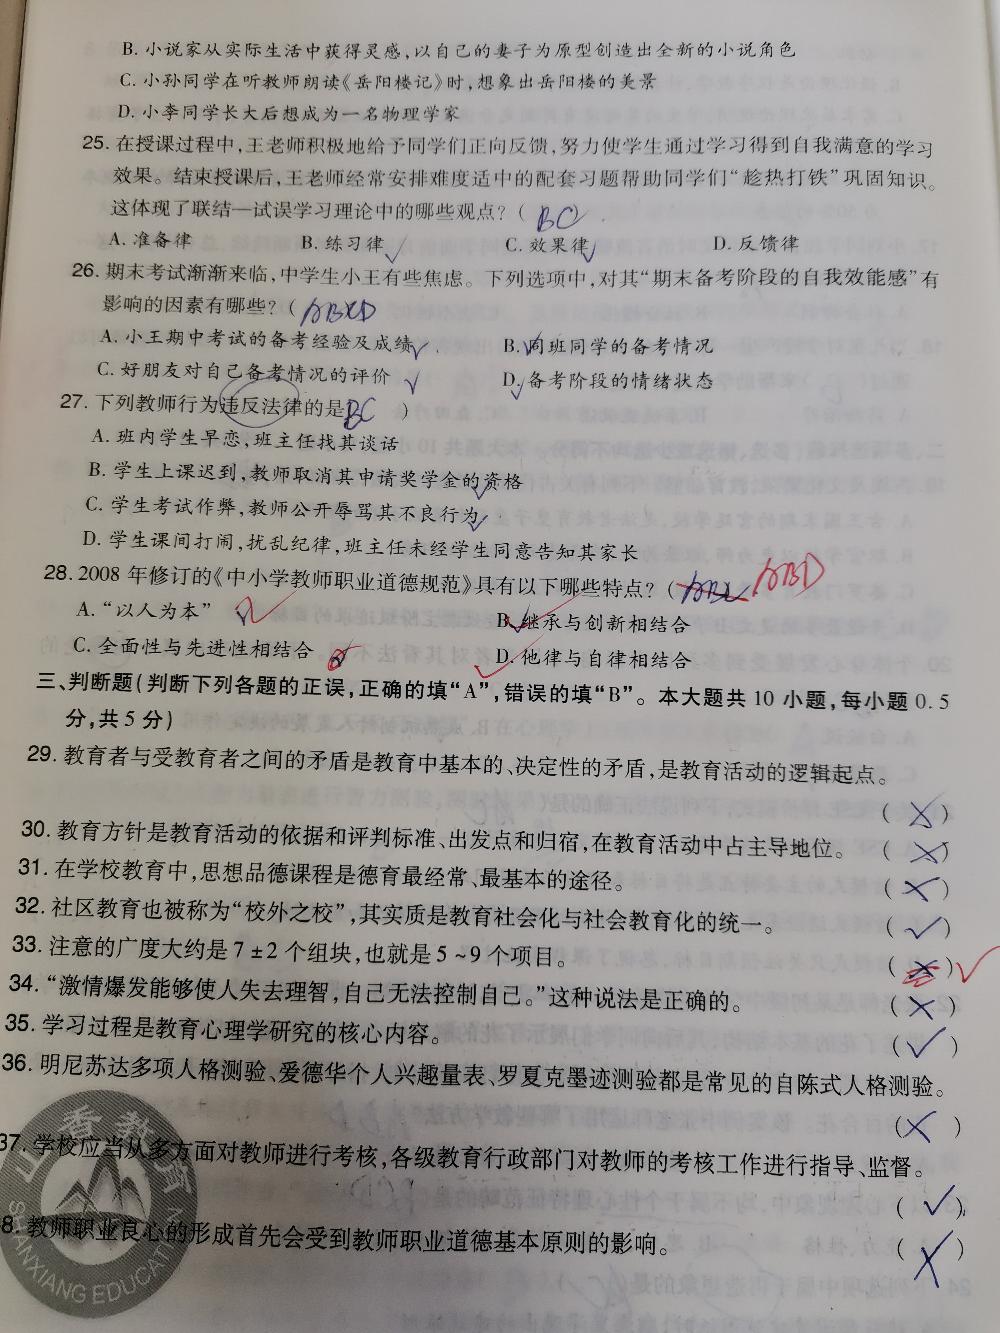 B. 小说家从实际生活中获得灵感,以自己的妻子为原型创造出全新的小说角色
C. 小孙同学在听教师朗读《岳阳楼记》时,想象出岳阳楼的美景
D. 小李同学长大后想成为一名物理学家
25. 在授课过程中,王老师积极地给予同学们正向反馈,努力使学生通过学习得到自我满意的学习
效果。结束授课后,王老师经常安排难度适中的配套习题帮助同学们“趁热打铁”巩固知识。
这体现了联结—试误学习理论中的哪些观点?( BC )
A. 准备律 B. 练习律 ✓ C. 效果律 ✓ D. 反馈律
26. 期末考试渐渐来临,中学生小王有些焦虑。下列选项中,对其“期末备考阶段的自我效能感”有
影响的因素有哪些?( ABCD
A. 小王期中考试的备考经验及成绩 ✓ B. 同班同学的备考情况
C. 好朋友对自己备考情况的评价 ✓ D. 备考阶段的情绪状态
27. 下列教师行为违反法律的是( BC )
A. 班内学生早恋,班主任找其谈话
B. 学生上课迟到,教师取消其申请奖学金的资格
C. 学生考试作弊,教师公开辱骂其不良行为
D. 学生课间打闹,扰乱纪律,班主任未经学生同意告知其家长
28. 2008 年修订的《中小学教师职业道德规范》具有以下哪些特点?( ABD
A. “以人为本” ✓ B. 继承与创新相结合
C. 全面性与先进性相结合 D. 他律与自律相结合
三、判断题(判断下列各题的正误,正确的填“A”,错误的填“B”。本大题共 10 小题,每小题 0. 5
分,共 5 分)
29. 教育者与受教育者之间的矛盾是教育中基本的、决定性的矛盾,是教育活动的逻辑起点。
( ✗ )
30. 教育方针是教育活动的依据和评判标准、出发点和归宿,在教育活动中占主导地位。 ( ✗ )
31. 在学校教育中,思想品德课程是德育最经常、最基本的途径。 ( ✗ )
32. 社区教育也被称为“校外之校”,其实质是教育社会化与社会教育化的统一。 ( ✓ )
33. 注意的广度大约是 7 ±2 个组块,也就是 5 ~9 个项目。 ( ) ✓
34. “激情爆发能够使人失去理智,自己无法控制自己。”这种说法是正确的。 ( ✗ )
35. 学习过程是教育心理学研究的核心内容。 ( ✓ )
36. 明尼苏达多项人格测验、爱德华个人兴趣量表、罗夏克墨迹测验都是常见的自陈式人格测验。
( ✗ )
37. 学校应当从多方面对教师进行考核,各级教育行政部门对教师的考核工作进行指导、监督。
( ✓ )
8. 教师职业良心的形成首先会受到教师职业道德基本原则的影响。 ( ✗ )
山香教育
SHANXIANG EDUCATION